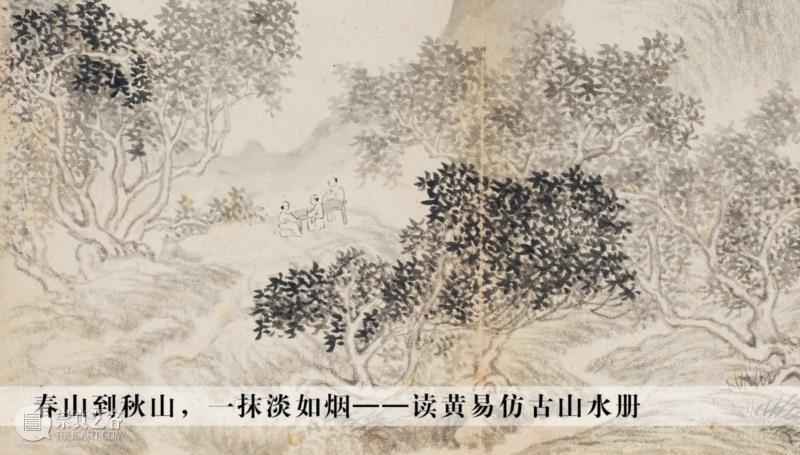 春山到秋山，一抹淡如烟——读黄易仿古山水册